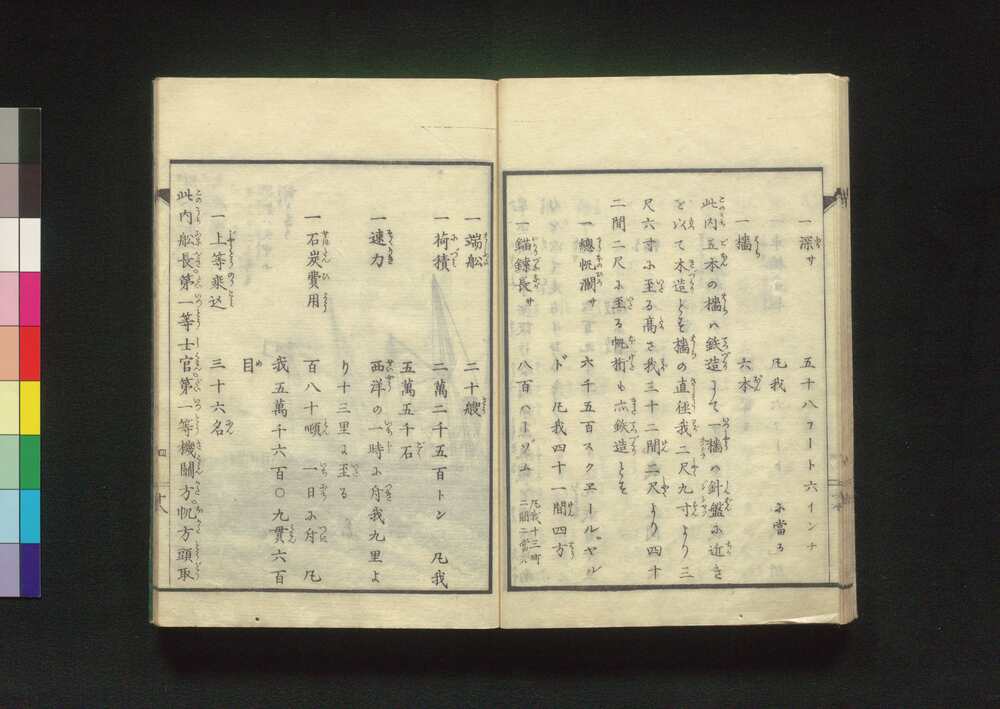 一深サ 五十八フート六インチ
凡我六 ニ當ル
一檣 六本
此内五本の檣ハ鉄造にて一檣ハ針盤に近き
を以て木造とす檣の直徑我二尺九寸より三
尺六寸に至る高さ我三十二間二尺より四十
二間二尺に至る帆桁も亦鉄造とす
一總帆濶サ 六千五百スクエールヤル
ド 凡我四十一間四方
一錨鏈長サ 八百ハーソム 凡我十三町
二間ニ當ル
一端舩 二十艘
一荷積 二萬二千五百トン 凡我
五萬五千石
一速力 西洋の一時に付我九里よ
り十三里に至る
一石炭費用 百八十噸 一日に付 凡
我五萬千六百〇九貫六百
目
一上等乗込 三十六名
此内舩長第一等士官第一等機關方帆方頭取